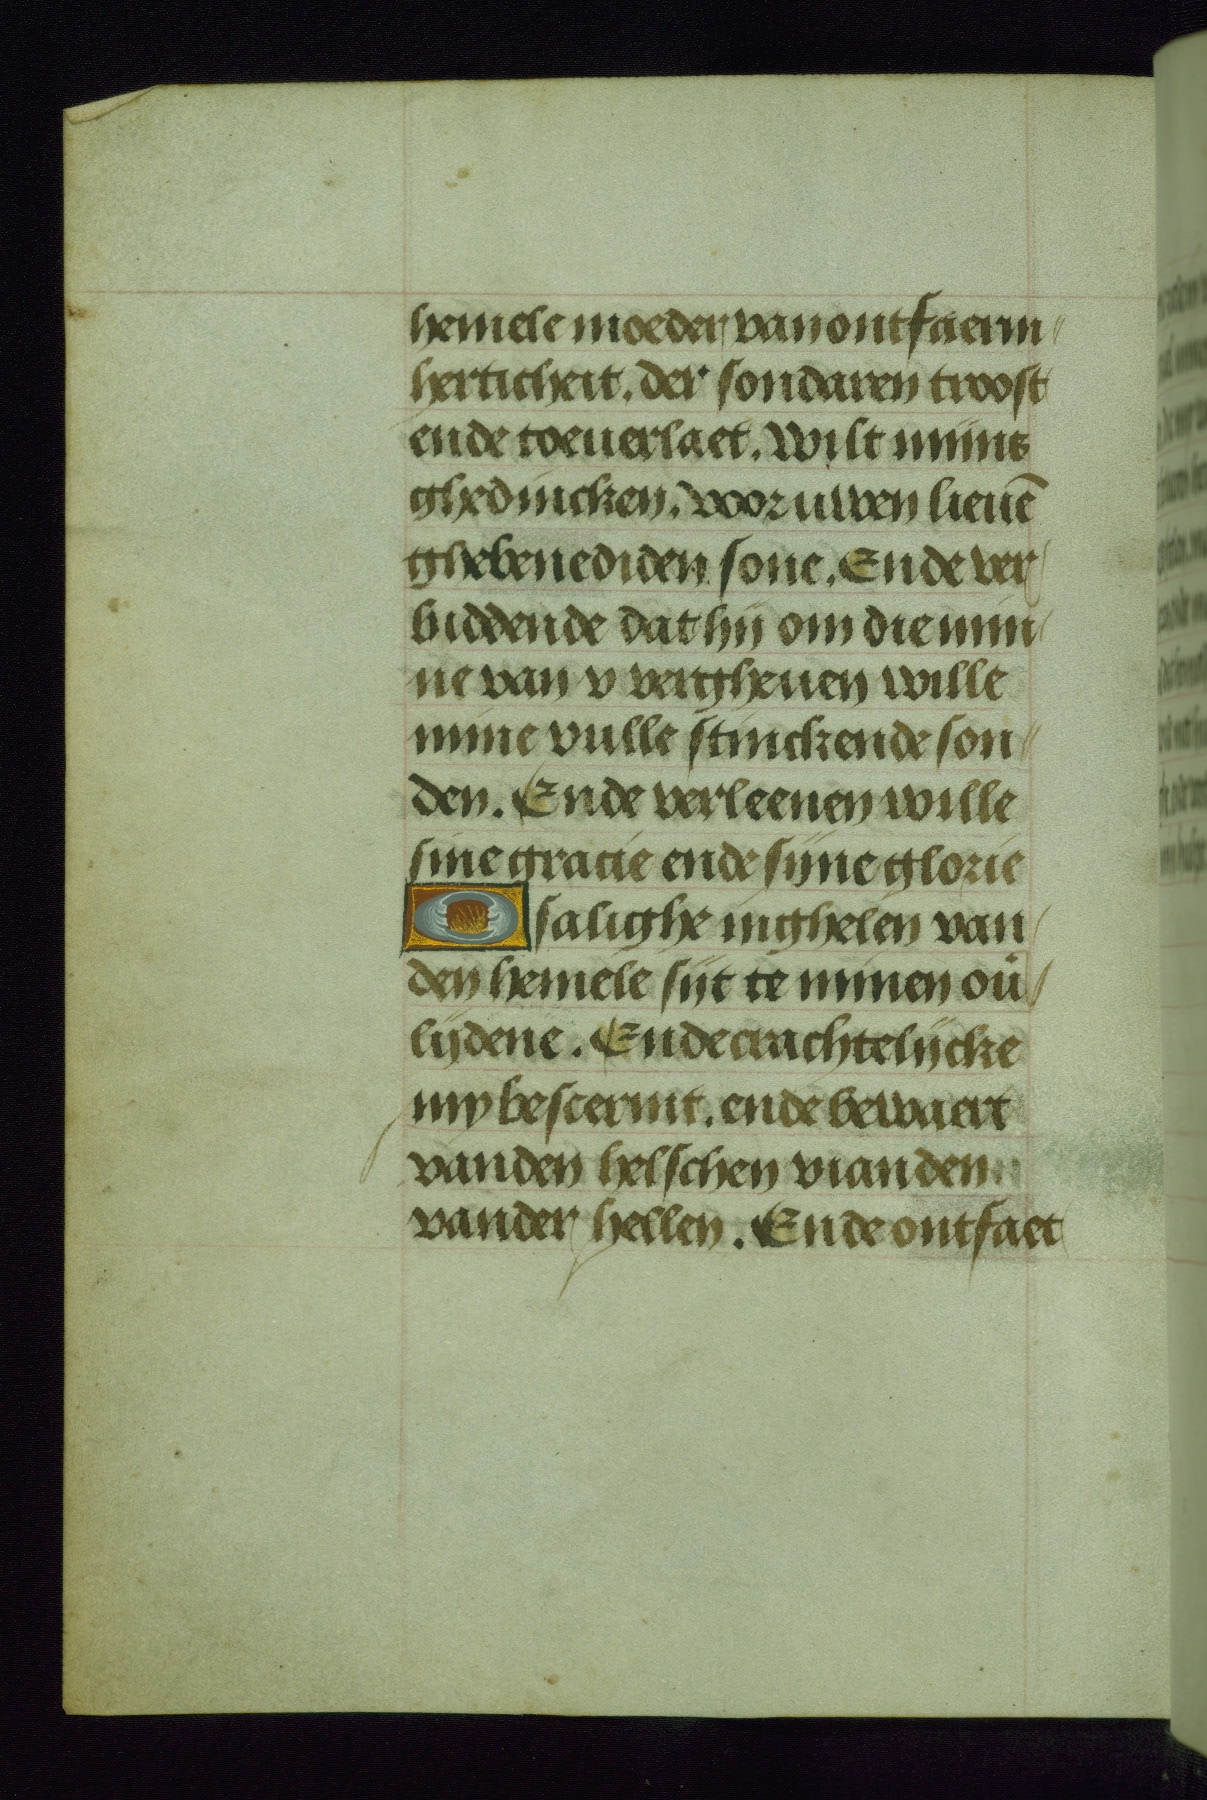 hemele moeder van ontfaerm〃
herticheit. der sondaren troost
ende toeuerlaet. Wilt mijns
ghedincken. voor uwen lieuē
ghebenediden sone. Ende ver
biddende dat hij om die min
ne van v vergheuen wille
mine vulle stinckende son〃
den. Ende verleenen wille
sine gracie ende sijne glorie
O salighe inghelen van
den hemele sijt te minen ou
lijdene. Ende crachtelijcke
my bescermt. ende bewaert
vanden helschen vianden
vander hellen. Ende ontfaet